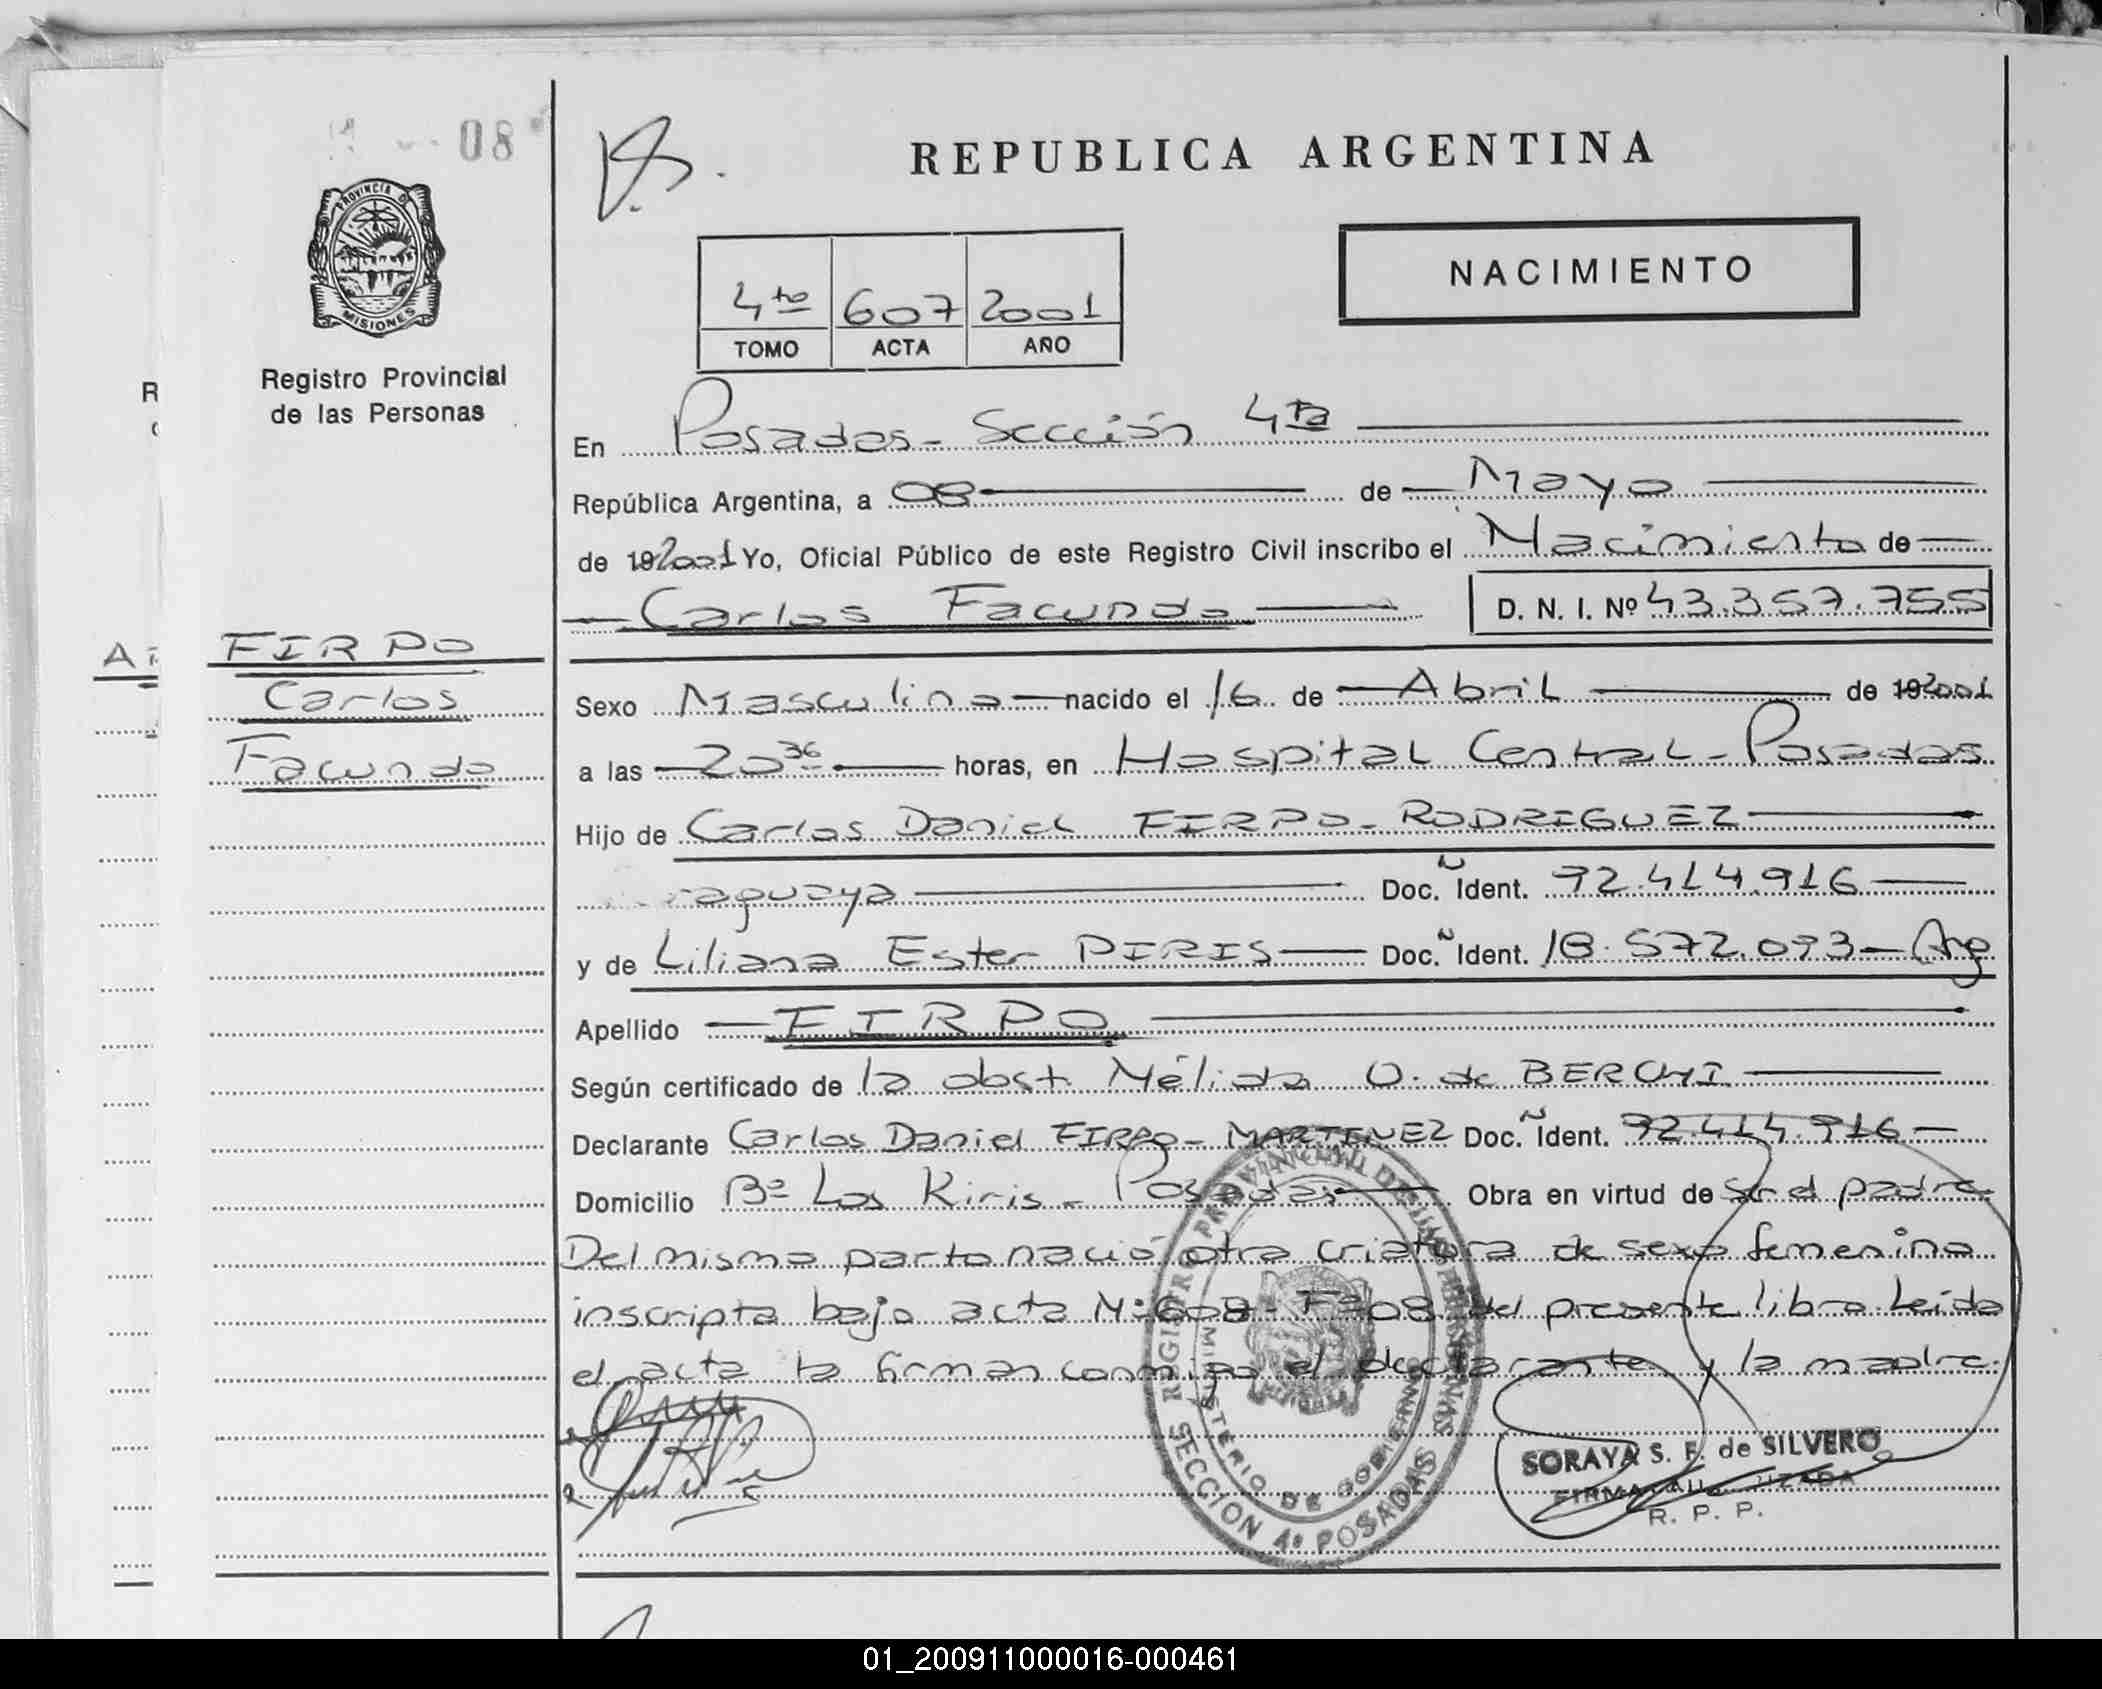 08
REPUBLICA ARGENTINA
PROVINCIA D
MISIONES
Registro Provincial
de las Personas
NACIMIENTO
4to 607 2001
TOMO ACTA AÑO
En Posadas - Sección 4ta
República Argentina, a 08 de Mayo
de 192001 Yo, Oficial Público de este Registro Civil inscribo el Nacimiento de
Carlos Facundo D. N. I. Nº 43.357.755
FIRPO
Carlos
Facundo
Sexo Masculino nacido el 16 de Abril de 192001
a las 20 36 horas, en Hospital Central - Posadas
Hijo de Carlos Daniel FIRPO - RODRIGUEZ
raguaya Doc. Ñ Ident. 92.414.916
y de Liliana Ester PIRIS Doc. Ñ Ident. 18.572.093 - Arg
Apellido FIRPO
Según certificado de la obst. Nélida O. de BERCHI
Declarante Carlos Daniel FIRPO - MARTINEZ Doc. Ñ Ident. 92.414.916
Domicilio Bº Los Kiris - Posadas Obra en virtud de ser el padre.
Del mismo parto nació otra criatura de sexo femenino
inscripta bajo acta Nº 608 - Fº 08 del presente libro Leída
el acta la firman conmigo el declarante y la madre.
REGISTRO PROVINCIAL DE LAS PERSONAS
MINISTERIO DE GOBIERNO
SECCION 4º POSADAS
SORAYA S. F. de SILVERO
FIRMA AUTORIZADA
R. P. P.
01_200911000016-000461